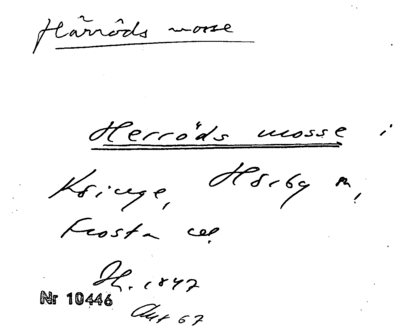 Härröds mosse
Herröds mosse i
Kringe, Hörby m,
Frosta
1847
Nr 10446
67